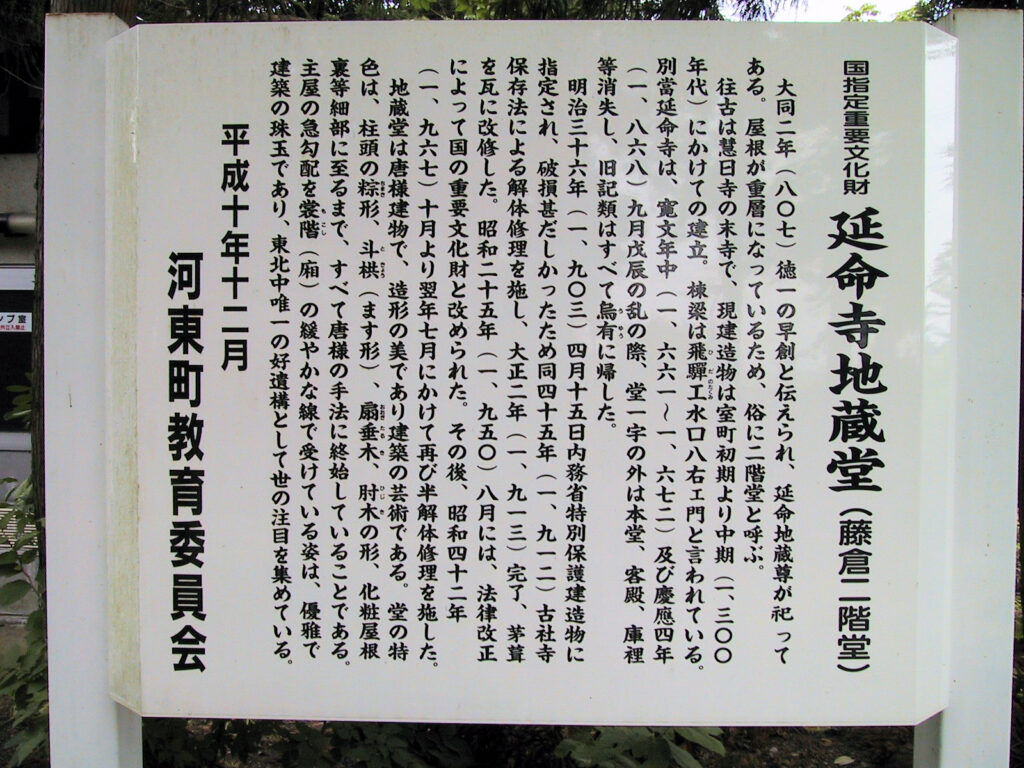 国指定重要文化財
延命寺地蔵堂(藤倉二階堂)
大同二年(八〇七)徳一の早創と伝えられ、延命地蔵尊が祀って
ある。屋根が重層になっているため、俗に二階堂と呼ぶ。
往古は慧日寺の末寺で、現建造物は室町初期より中期(一、三〇〇
年代)にかけての建立。棟梁は飛騨工水口八右エ門と言われている。
別當延命寺は、寛文年中(一、六六一〜一、六七二)及び慶應四年
(一、八六八)九月戊辰の乱の際、堂一字の外は本堂、客殿、庫裡
等消失し、旧記類はすべて烏有に帰した。
明治三十六年(一、九〇三)四月十五日内務省特別保護建造物に
指定され、破損甚だしかったため同四十五年(一、九一二)古社寺
保存法による解体修理を施し、大正二年(一、九一三)完了、茅葺
を瓦に改修した。昭和二十五年(一、九五〇)八月には、法律改正
によって国の重要文化財と改められた。その後、昭和四十二年
(一、九六七)十月より翌年七月にかけて再び半解体修理を施した。
地蔵堂は唐様建物で、造形の美であり建築の芸術である。堂の特
色は、柱頭の粽形、斗栱(ます形)、扇垂木、肘木の形、化粧屋根
裏等細部に至るまで、すべて唐様の手法に終始していることである。
主屋の急勾配を裳階(廂)の緩やかな線で受けている姿は、優雅で
建築の珠玉であり、東北中唯一の好遺構として世の注目を集めている。
平成十年十二月
河東町教育委員会